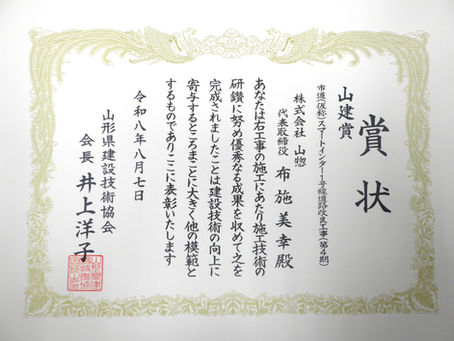 賞状
山建賞
市道(仮称)スマートインター1号線道路改良工事(第4期)
株式会社 山惣
代表取締役 布施美幸殿
あなたは右工事の施工にあたり施工技術の
研鑽に努め優秀なる成果を収めて之を
完成されましたことは建設技術の向上に
寄与するところまことに大きく他の模範と
するものでありここに表彰いたします
令和八年八月七日
山形県建設技術協会
会長 井上洋子